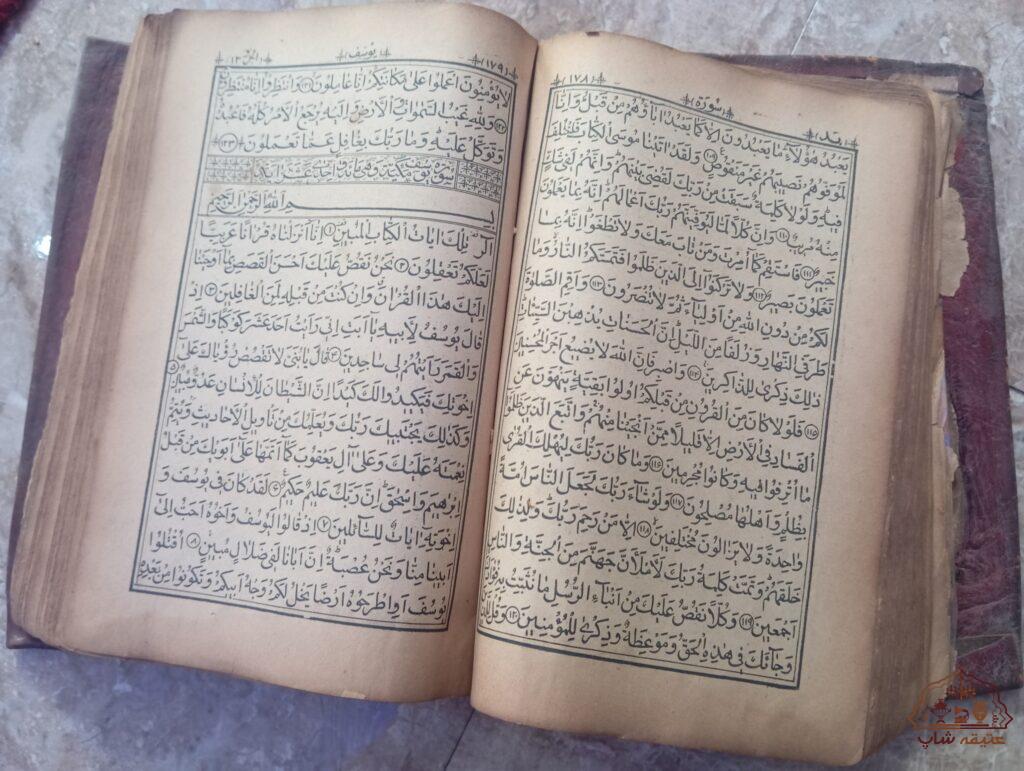 هود سورة ١٧٨
يعبد هؤلاء ما يعبدون الا كما يعبد اباؤهم من قبل وانا
لموفوهم نصيبهم غير منقوص ولقد اتينا موسى الكتاب فاختلف
فيه ولولا كلمة سبقت من ربك لقضي بينهم وانهم لفي شك
منه مريب وان كلا لما ليوفينهم ربك اعمالهم انه بما يعملون
خبير ١١١ فاستقم كما امرت ومن تاب معك ولا تطغوا انه بما
تعملون بصير ١١٢ ولا تركنوا الى الذين ظلموا فتمسكم النار وما
لكم من دون الله من اولياء ثم لا تنصرون ١١٣ واقم الصلوة
طرفي النهار وزلفا من الليل ان الحسنات يذهبن السيئات
ذلك ذكرى للذاكرين واصبر فان الله لا يضيع اجر المحسنين
١١٥ فلولا كان من القرون من قبلكم اولوا بقية ينهون عن
الفساد في الارض الا قليلا ممن انجينا منهم واتبع الذين ظلموا
ما اترفوا فيه وكانوا مجرمين ١١٦ وما كان ربك ليهلك القرى
بظلم واهلها مصلحون ١١٧ ولو شاء ربك لجعل الناس امة
واحدة ولا يزالون مختلفين ١١٨ الا من رحم ربك ولذلك
خلقهم وتمت كلمة ربك لاملان جهنم من الجنة والناس
اجمعين ١١٩ وكلا نقص عليك من انباء الرسل ما نثبت به فؤادك
وجاءك في هذه الحق وموعظة وذكرى للمؤمنين ١٢٠ وقل للذين
١٧٩ يوسف الجزء ١٢
لا يؤمنون اعملوا على مكانتكم انا عاملون ١٢١ وانتظروا انا منتظرون
١٢٢ ولله غيب السموات والارض واليه يرجع الامر كله فاعبده
وتوكل عليه وما ربك بغافل عما تعملون ١٢٣
سورة يوسف مكية وهي مائة واحدى عشرة اية
بسم الله الرحمن الرحيم
الر تلك ايات الكتاب المبين ١ انا انزلناه قرانا عربيا
لعلكم تعقلون ٢ نحن نقص عليك احسن القصص بما اوحينا
اليك هذا القران وان كنت من قبله لمن الغافلين ٣ اذ
قال يوسف لابيه يا ابت اني رايت احد عشر كوكبا والشمس
والقمر رايتهم لي ساجدين ٤ قال يا بني لا تقصص رؤياك على
اخوتك فيكيدوا لك كيدا ان الشيطان للانسان عدو مبين ٥
وكذلك يجتبيك ربك ويعلمك من تاويل الاحاديث ويتم
نعمته عليك وعلى ال يعقوب كما اتمها على ابويك من قبل
ابرهيم واسحق ان ربك عليم حكيم ٦ لقد كان في يوسف و
اخوته ايات للسائلين ٧ اذ قالوا ليوسف واخوه احب الى
ابينا منا ونحن عصبة ان ابانا لفي ضلال مبين ٨ اقتلوا
يوسف او اطرحوه ارضا يخل لكم وجه ابيكم وتكونوا من بعده
عتیقه شاپ